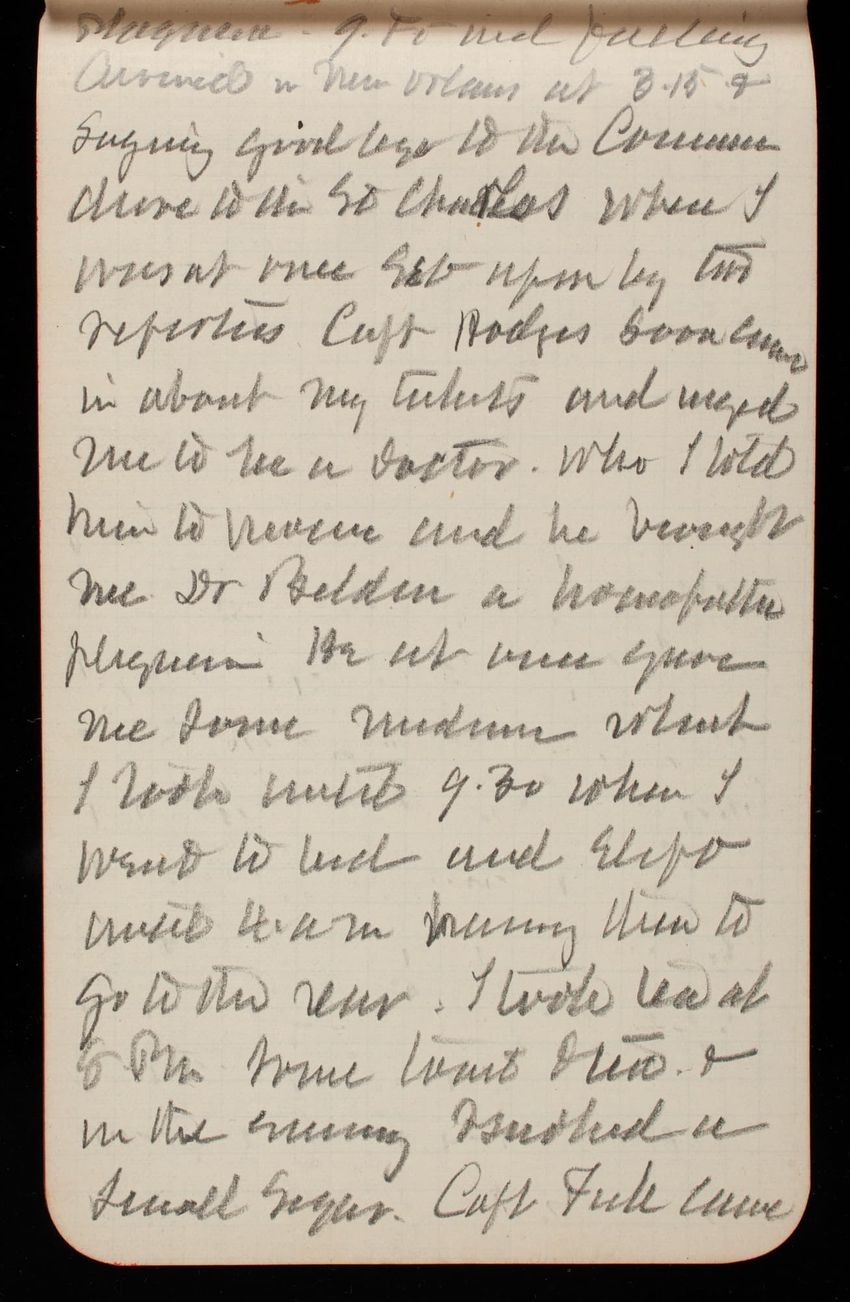 Arrived in New Orleans at 3.15 &
Saying good bye to the Comman
drove to the St Charles where I
was at once Set upon by two
reporters Capt Hodges Soon came
in about my tickets and urged
me to see a doctor. Who I told
him to procure and he brought
me Dr Belden a homeopathic
physician He at once gave
me Some medicine which
I took until 9.30 when I
went to bed and Slept
until 4 a m having then to
go to the rear. I took tea at
6 Pm Some toast & tea. &
in the evening I smoked a
Small Segar. Capt came